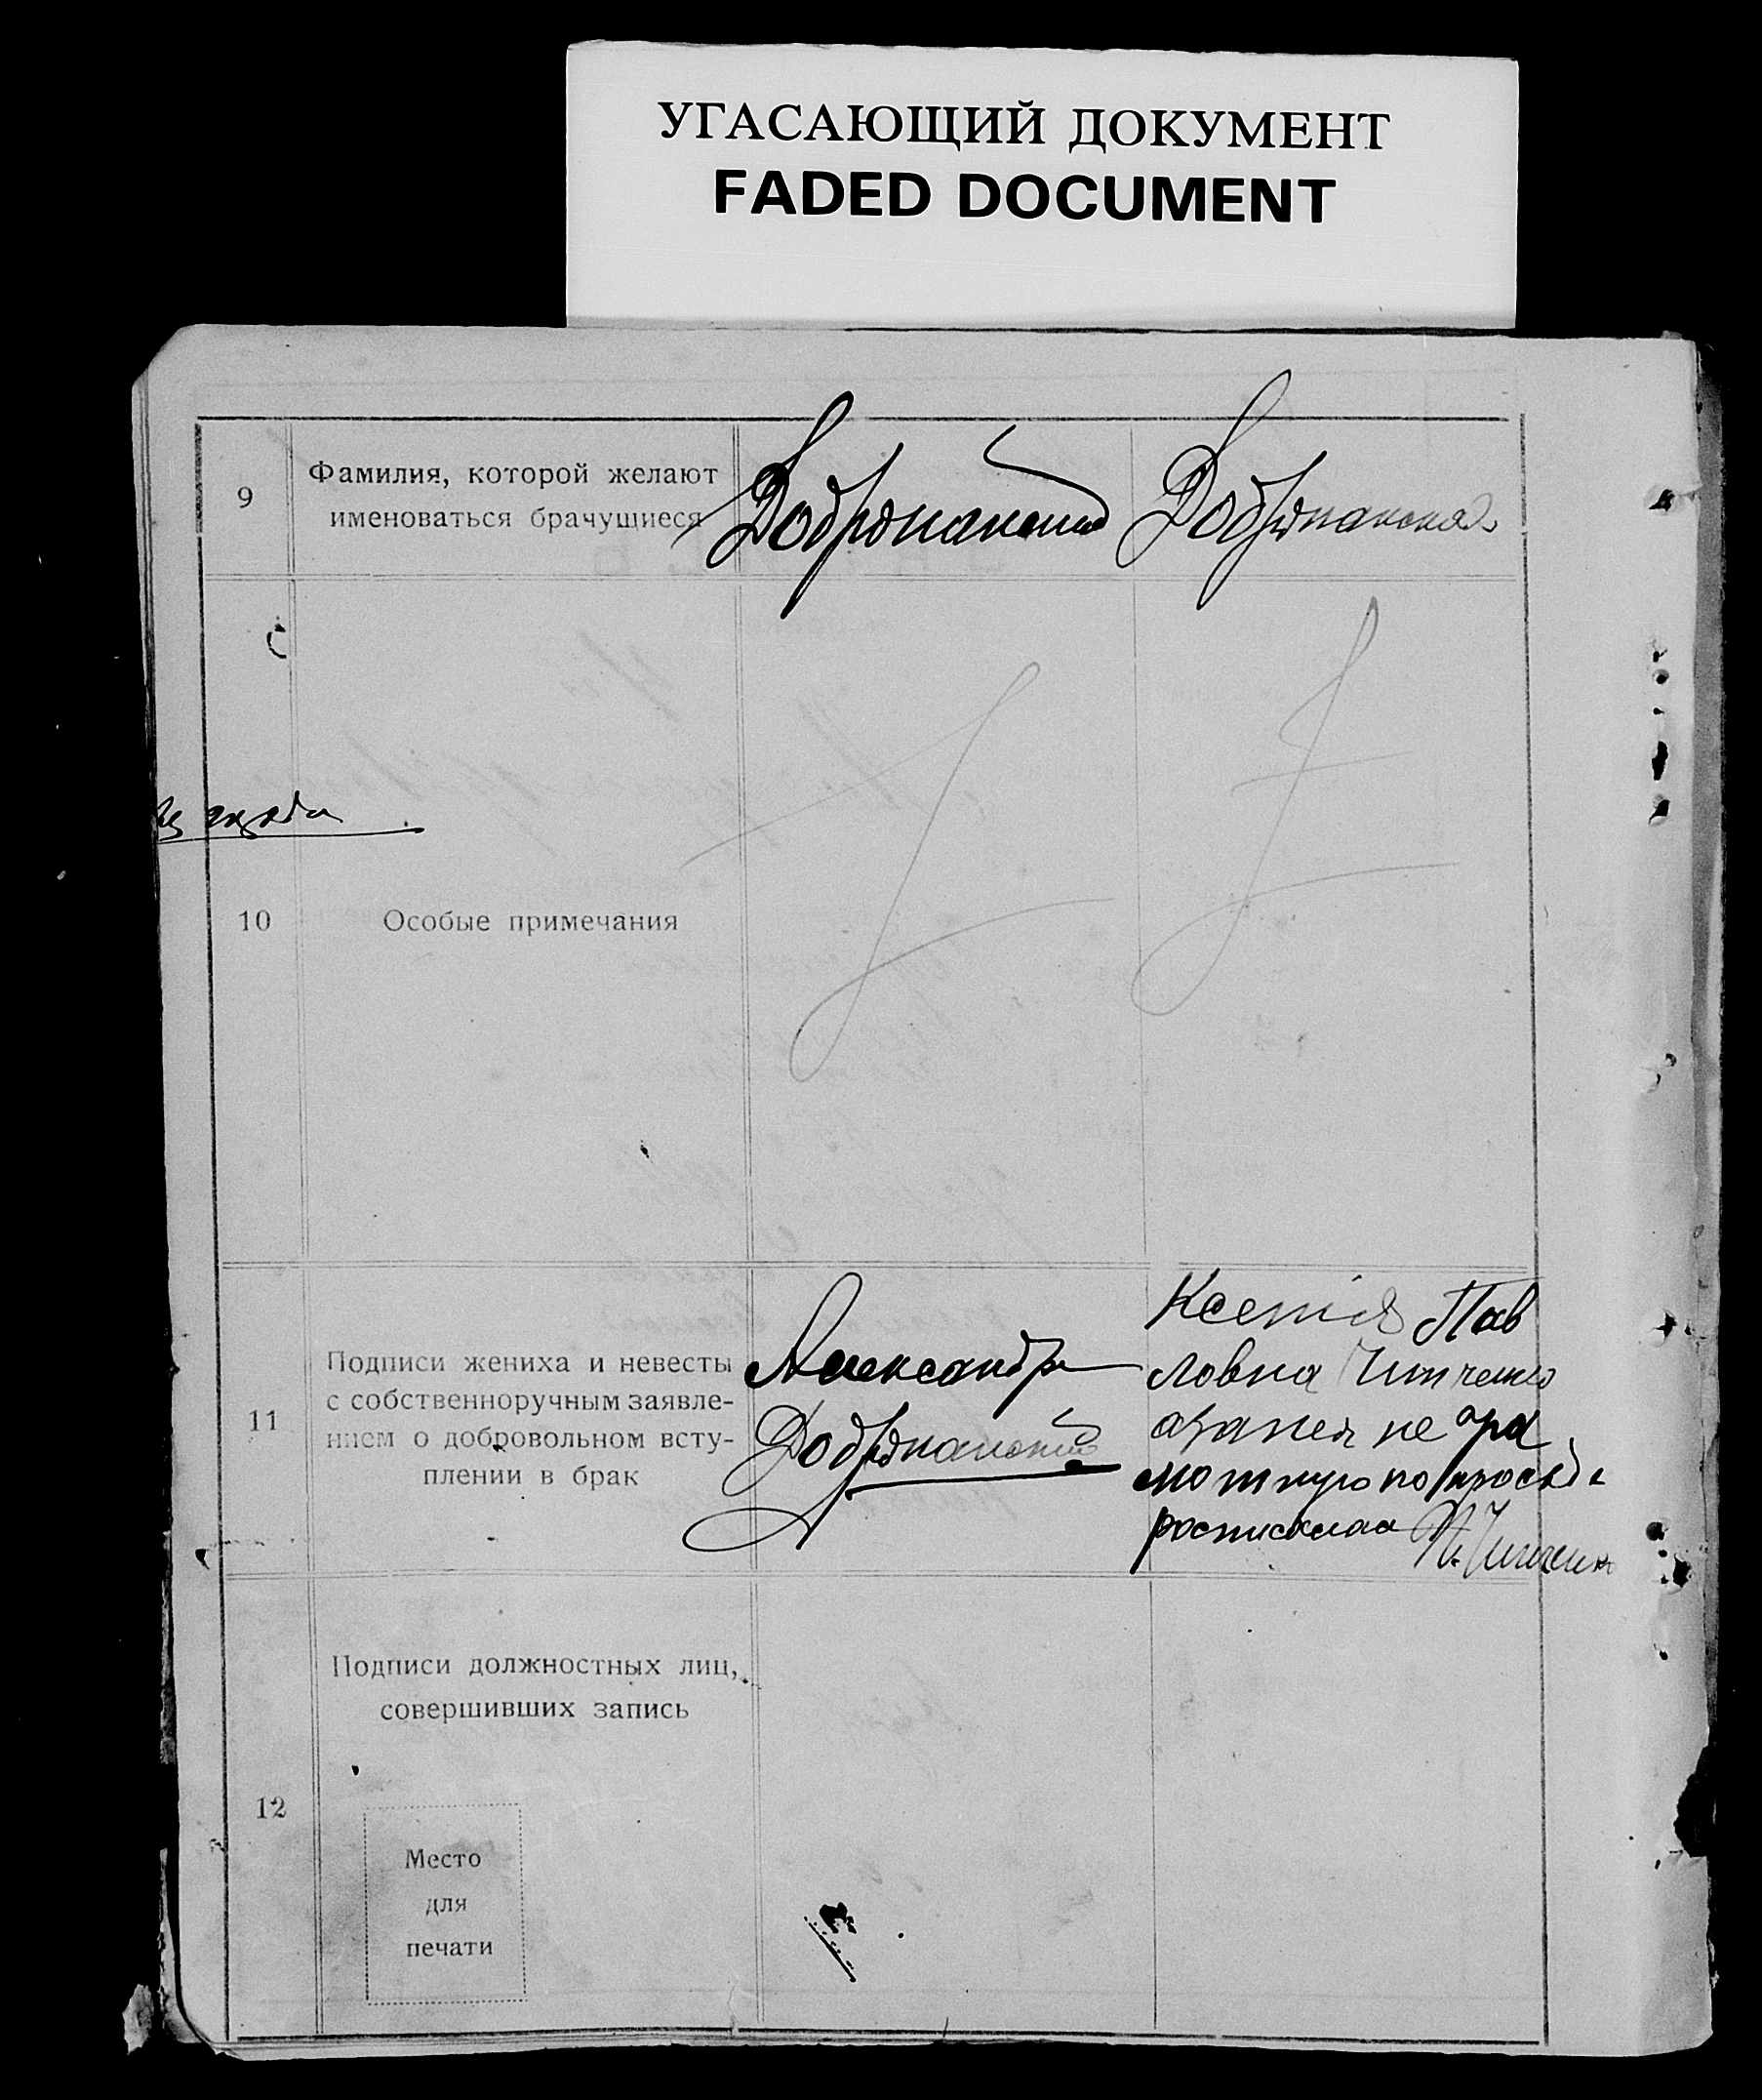 УГАСАЮЩИЙ ДОКУМЕНТ
FADED DOCUMENT
9
Фамилия, которой желают
именоваться брачущиеся
Добрянский
Добрянская
10
Особые примечания
11
Подписи жениха и невесты
с собственноручным заявле-
нием о добровольном всту-
плении в брак
Александр
Добрянский
Ксенія Пав
ловна
не гра
мотную по прозьбе
росписался
12
Подписи должностных лиц,
совершивших запись
Место
для
печати